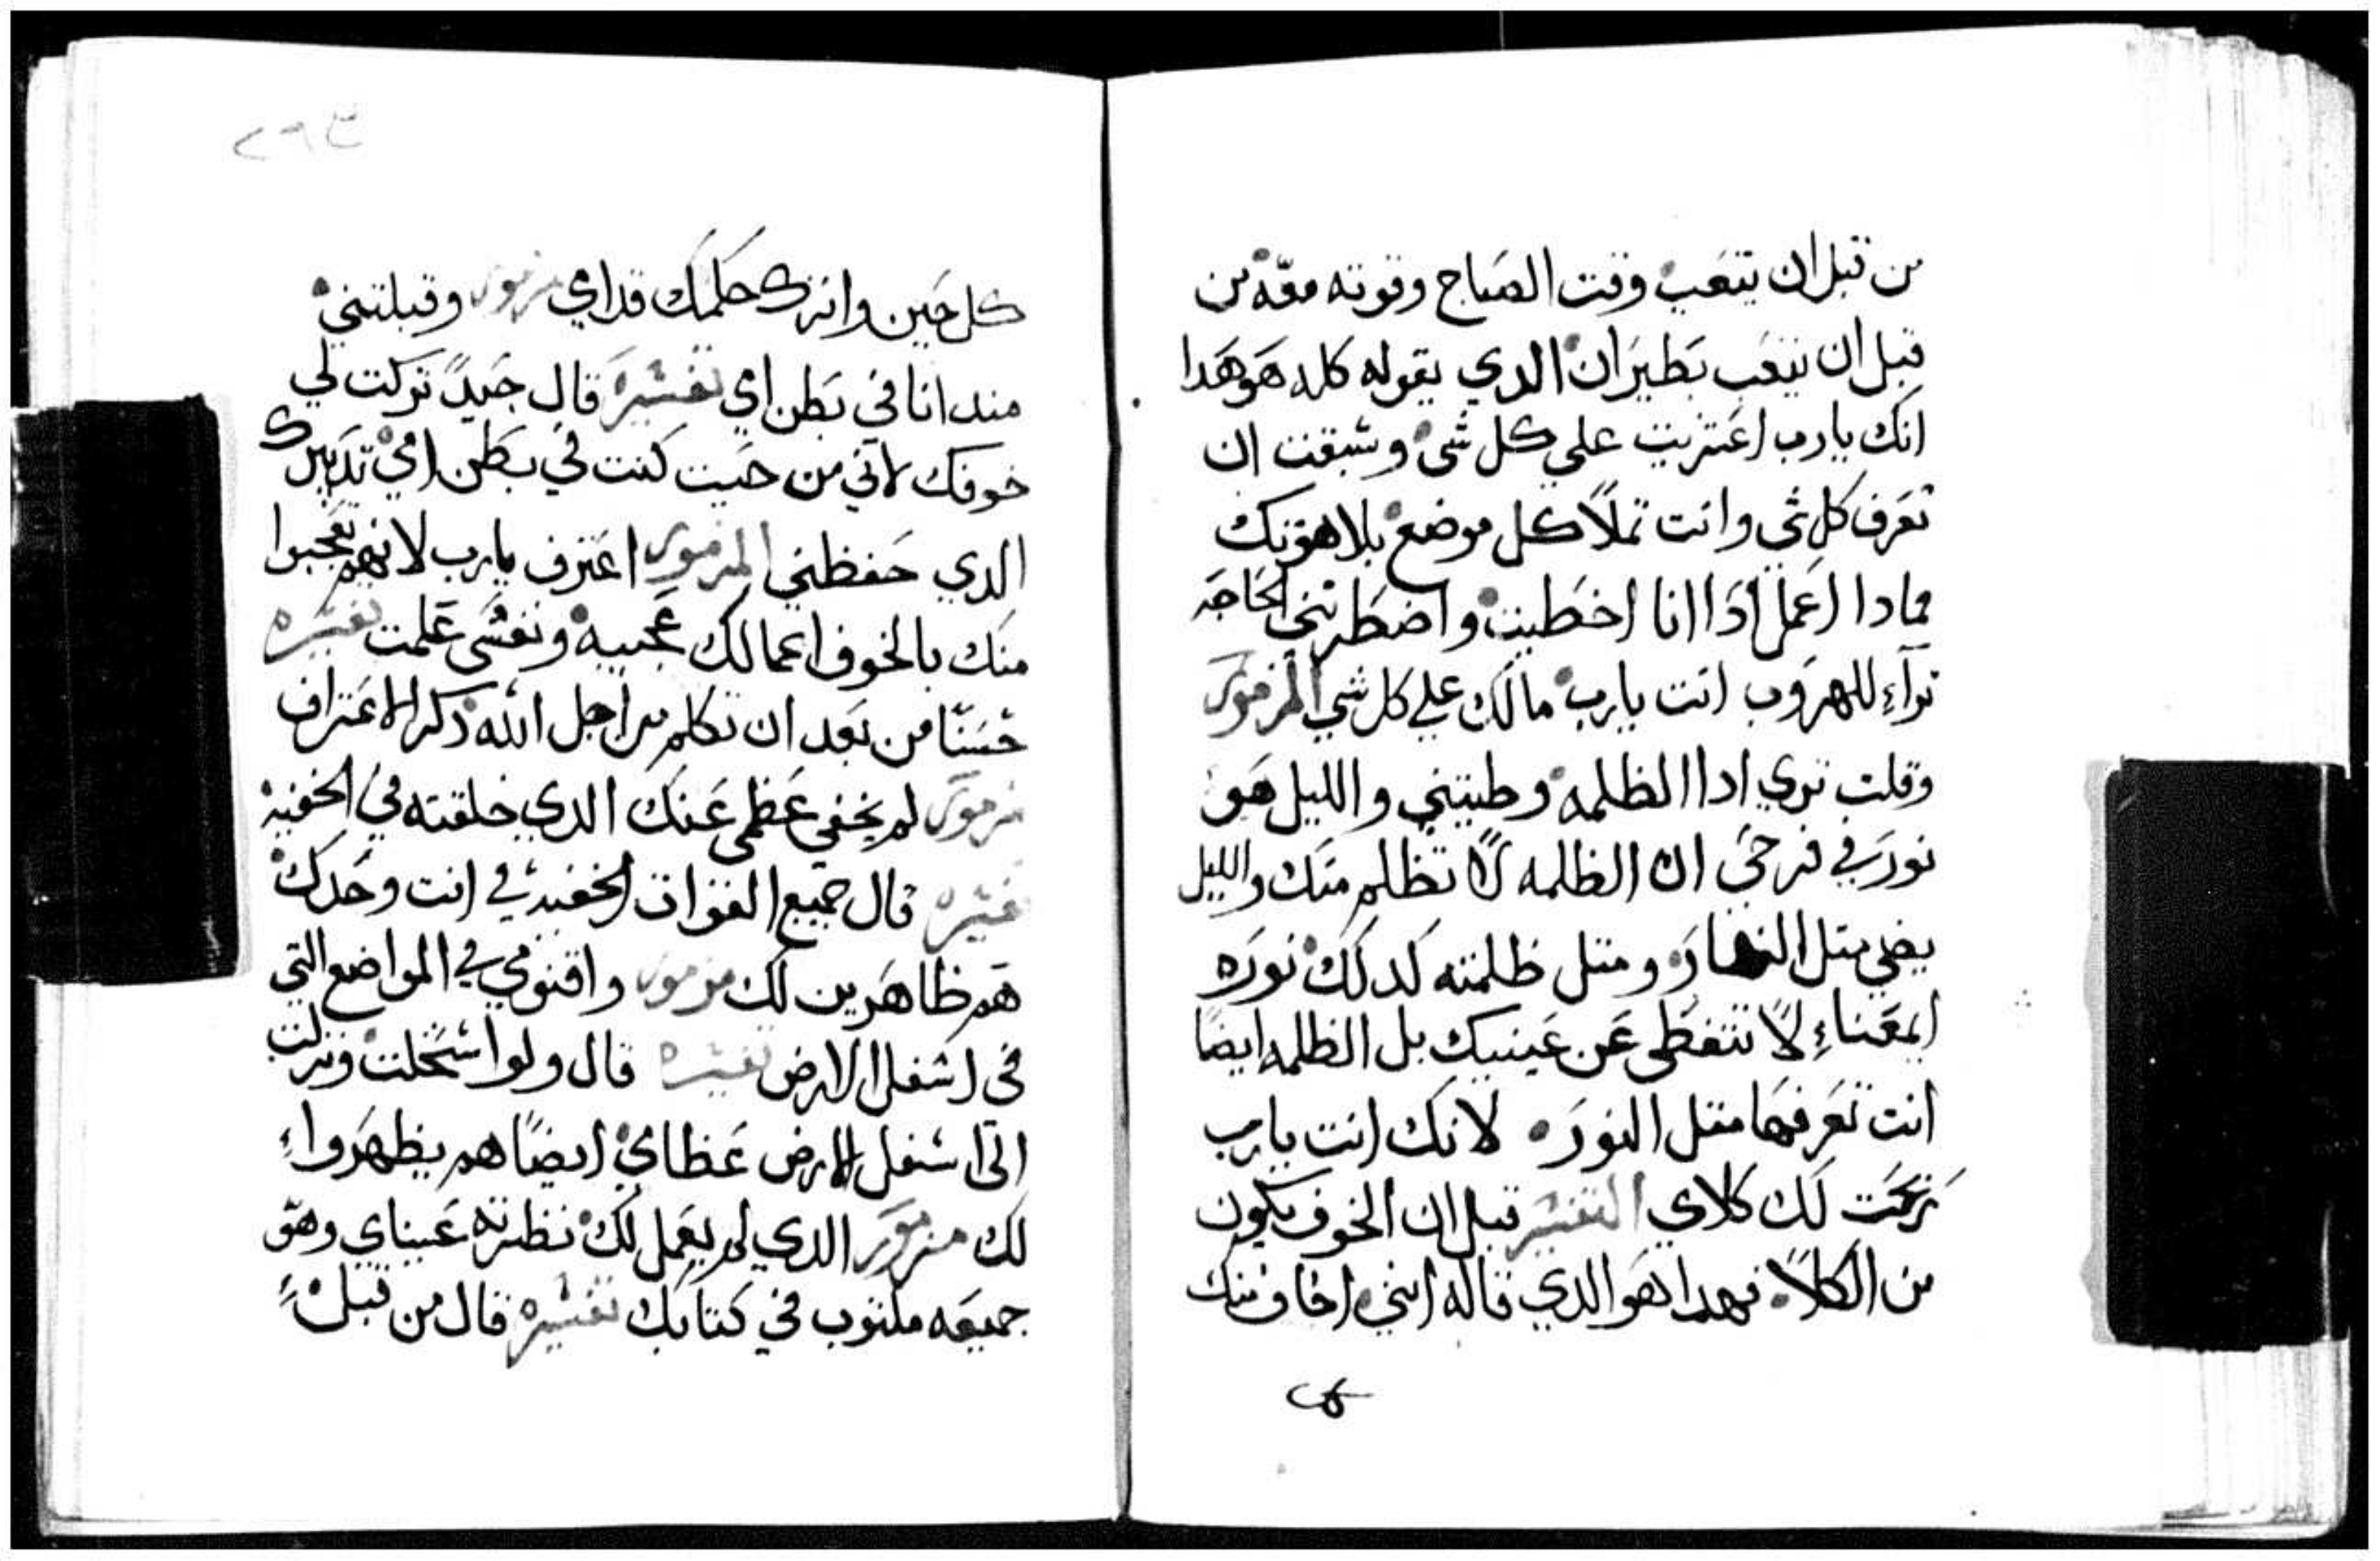 من قبل ان يتعب وقت الصباح وقوته معه من
قبل ان يتعب بطيران الدي يقوله كله هو هدا
انك يارب اعتزيت علي كل شي وسبقت ان
تعرف كل شي وانت تملا كل موضع بلاهوتك
فمادا اعمل ادا انا اخطيت واضطرتني الحاجه
تراء للهروب انت يارب مالك علي كل شي المزمور
وقلت تري ادا الظلمه وطيتني والليل هو
نور في فرحي ان الظلمه لا تظلم منك والليل
يضي متل النهار ومتل ظلمته كدلك نوره
المعناء لا تتغطي عن عينيك بل الظلمه ايضا
انت تعرفها متل النور لانك انت يارب
لك كلاي التفسير قبل ان الخوف يكون
من الكلا فهدا هو الدي قاله انني اخاف منك
٢٩٣
كل حين واترك حكمك قداي مزمور وقبلتني
مند انا في بطن اي تفسيره قال جيد تركت لي
خوفك لاني من حيت كنت في بطن امي تدبيرك
الدي حفظني المزمور اعترف يارب لانهم تعجبوا
منك بالخوف اعمالك عجيبه ونفسي علمت تفسيره
حسنا من بعد ان تكلم من اجل الله دكر الاعتراف
مزمور لم يخفي عظمي عنك الدي خلقته في الخفيه
تفسيره قال جميع القوات الخفيه في انت وحدك
هم ظاهرين لك مزمور واقنومي في المواضع التي
في اسفل الارض تفسيره قال ولو اسحلت ونزلت
الي اسفل الارض عظاي ايضا هم يظهروا
لك مزمور الدي لم يعمل لك نظرته عيناي وهو
جميعه مكتوب في كتابك تفسيره قال من قبل